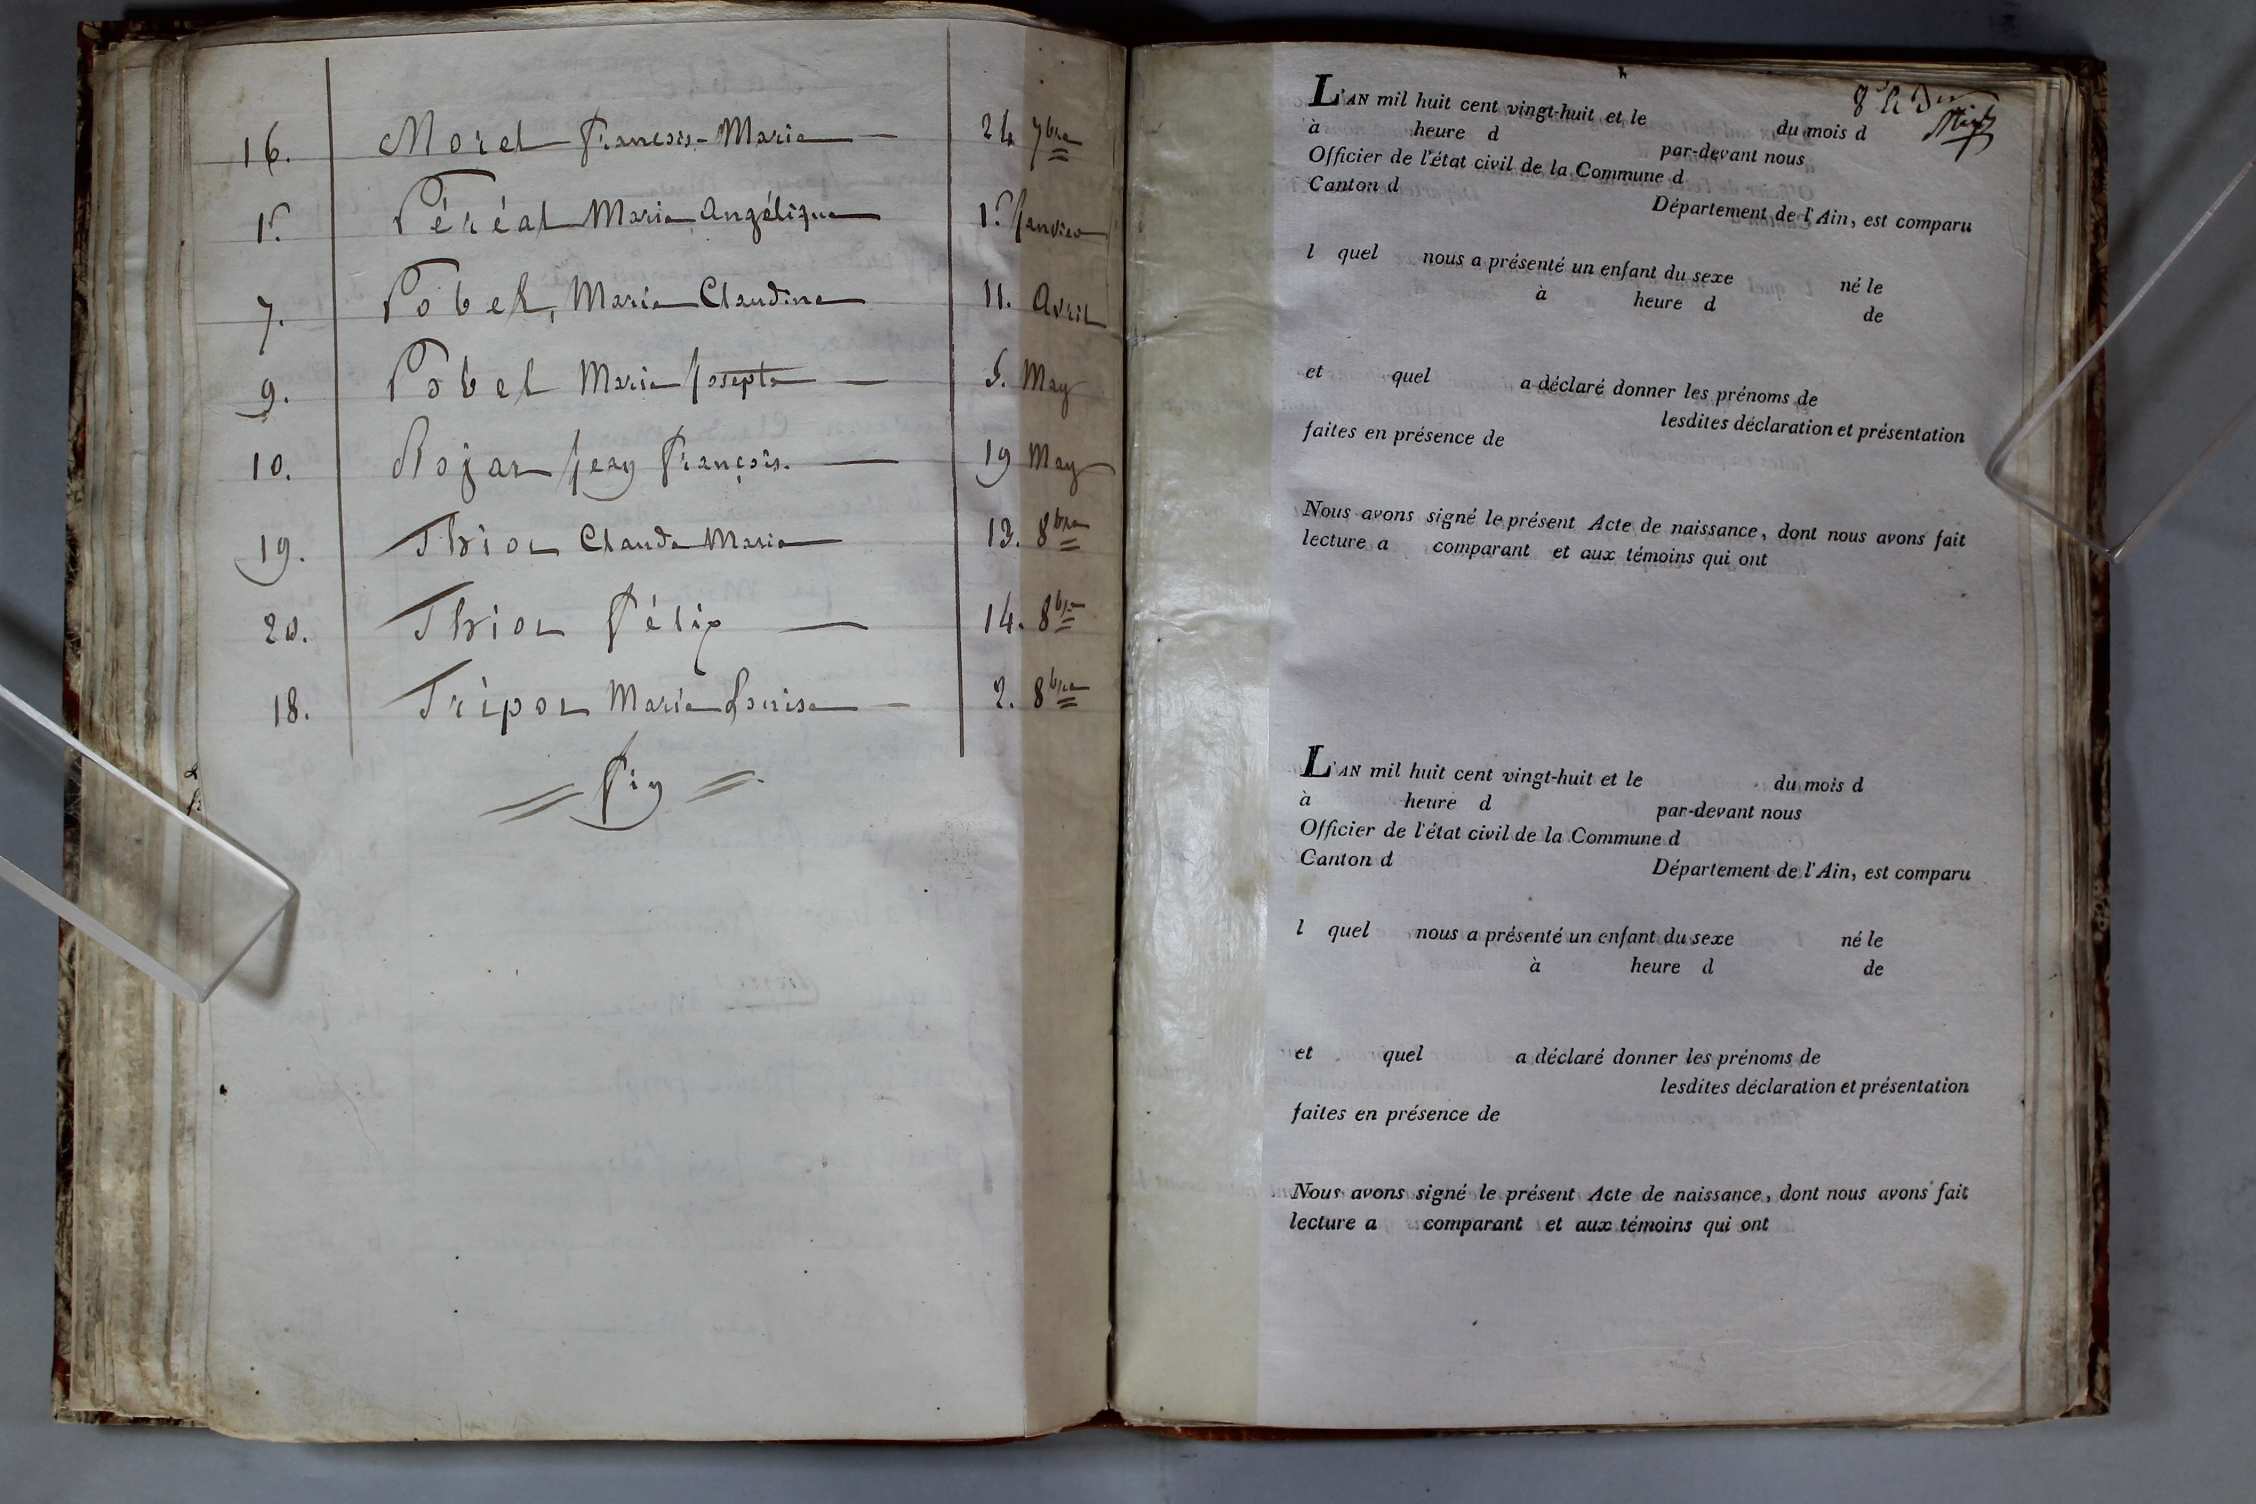 16. Morel François-Marie — 24 7bre
1r. Péréal Marie Angélique 1r Janvier
7. Pobel, Marie Claudine 11. Avril
9. Pobel Marie Josepte — 5. May
10. Rojat Jean François. — 19 May
19. Thiot Claude Marie 13. 8bre
20. Thiot Félix — 14. 8bre
18. Tripot Marie Louise — 2. 8bre
Fin
L'AN mil huit cent vingt-huit et le du mois d
à heure d par-devant nous
Officier de l'état civil de la Commune d
Canton d Département de l'Ain, est comparu
l quel nous a présenté un enfant du sexe né le
à heure d de
et quel a déclaré donner les prénoms de
lesdites déclaration et présentation
faites en présence de
Nous avons signé le présent Acte de naissance, dont nous avons fait
lecture a comparant et aux témoins qui ont
L'AN mil huit cent vingt-huit et le du mois d
à heure d par-devant nous
Officier de l'état civil de la Commune d
Canton d Département de l'Ain, est comparu
l quel nous a présenté un enfant du sexe né le
à heure d de
et quel a déclaré donner les prénoms de
lesdites déclaration et présentation
faites en présence de
Nous avons signé le présent Acte de naissance, dont nous avons fait
lecture a comparant et aux témoins qui ont